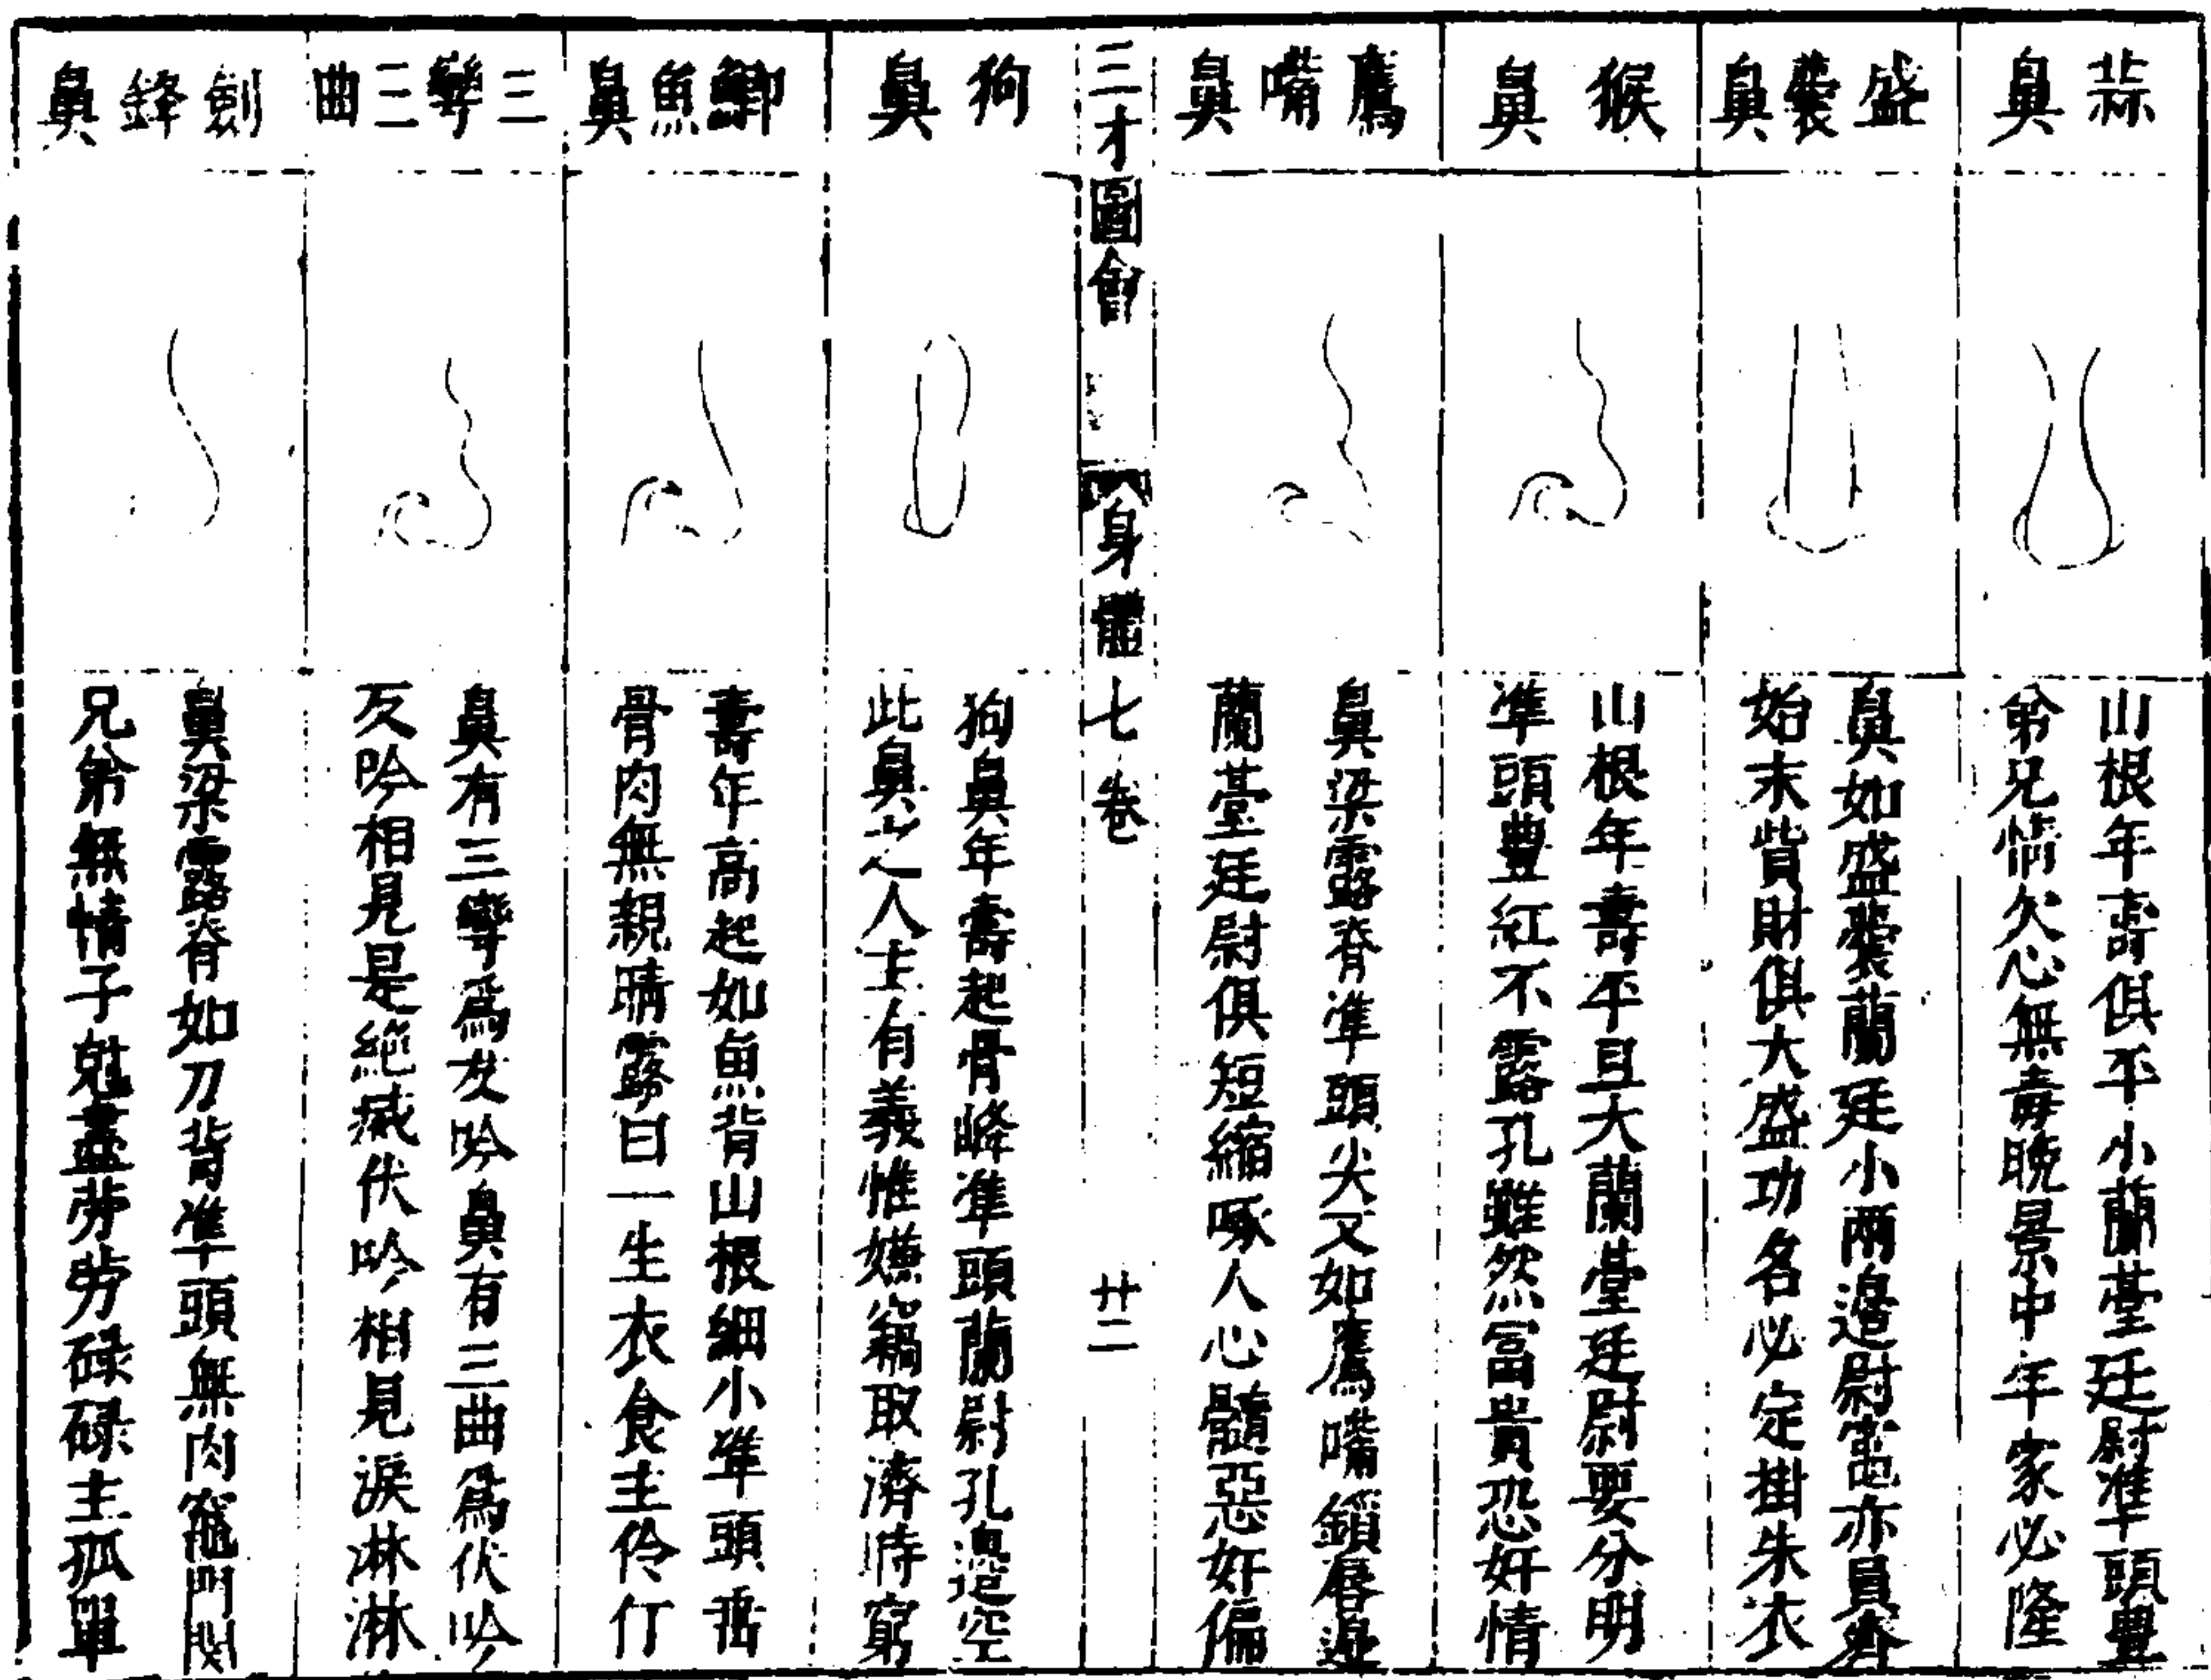 蒜鼻
山根年壽俱平小蘭臺廷尉準頭豐
弟兄情欠心無毒晚景中年家必隆
盛囊鼻
鼻如盛囊蘭廷小兩邉尉竃亦員齊
始末貲財俱大盛功名必定掛朱衣
猴鼻
山根年壽平且大蘭臺廷尉要分明
準頭豊紅不露孔雖然富貴恐奸情
鷹嘴鼻
鼻梁露脊準頭尖又如鷹嘴鎖唇邉
蘭臺廷尉俱短縮啄人心髓惡奸偏
三才圖會
身體七卷
廿二
狗鼻
狗鼻年壽起骨峰準頭蘭尉孔邉空
此鼻之人主有義惟嫌竊取濟時窮
鯽魚鼻
壽年高起如魚背山根細小準頭垂
骨肉無親睛露白一生衣食主伶仃
三彎三曲
鼻有三彎爲反吟鼻有三曲爲伏吟
反吟相見是絕滅伏吟相見淚淋淋
劍鋒鼻
鼻梁露脊如刀背準頭無肉竈門関
兄弟無情子尅盡劳劳碌碌主孤單